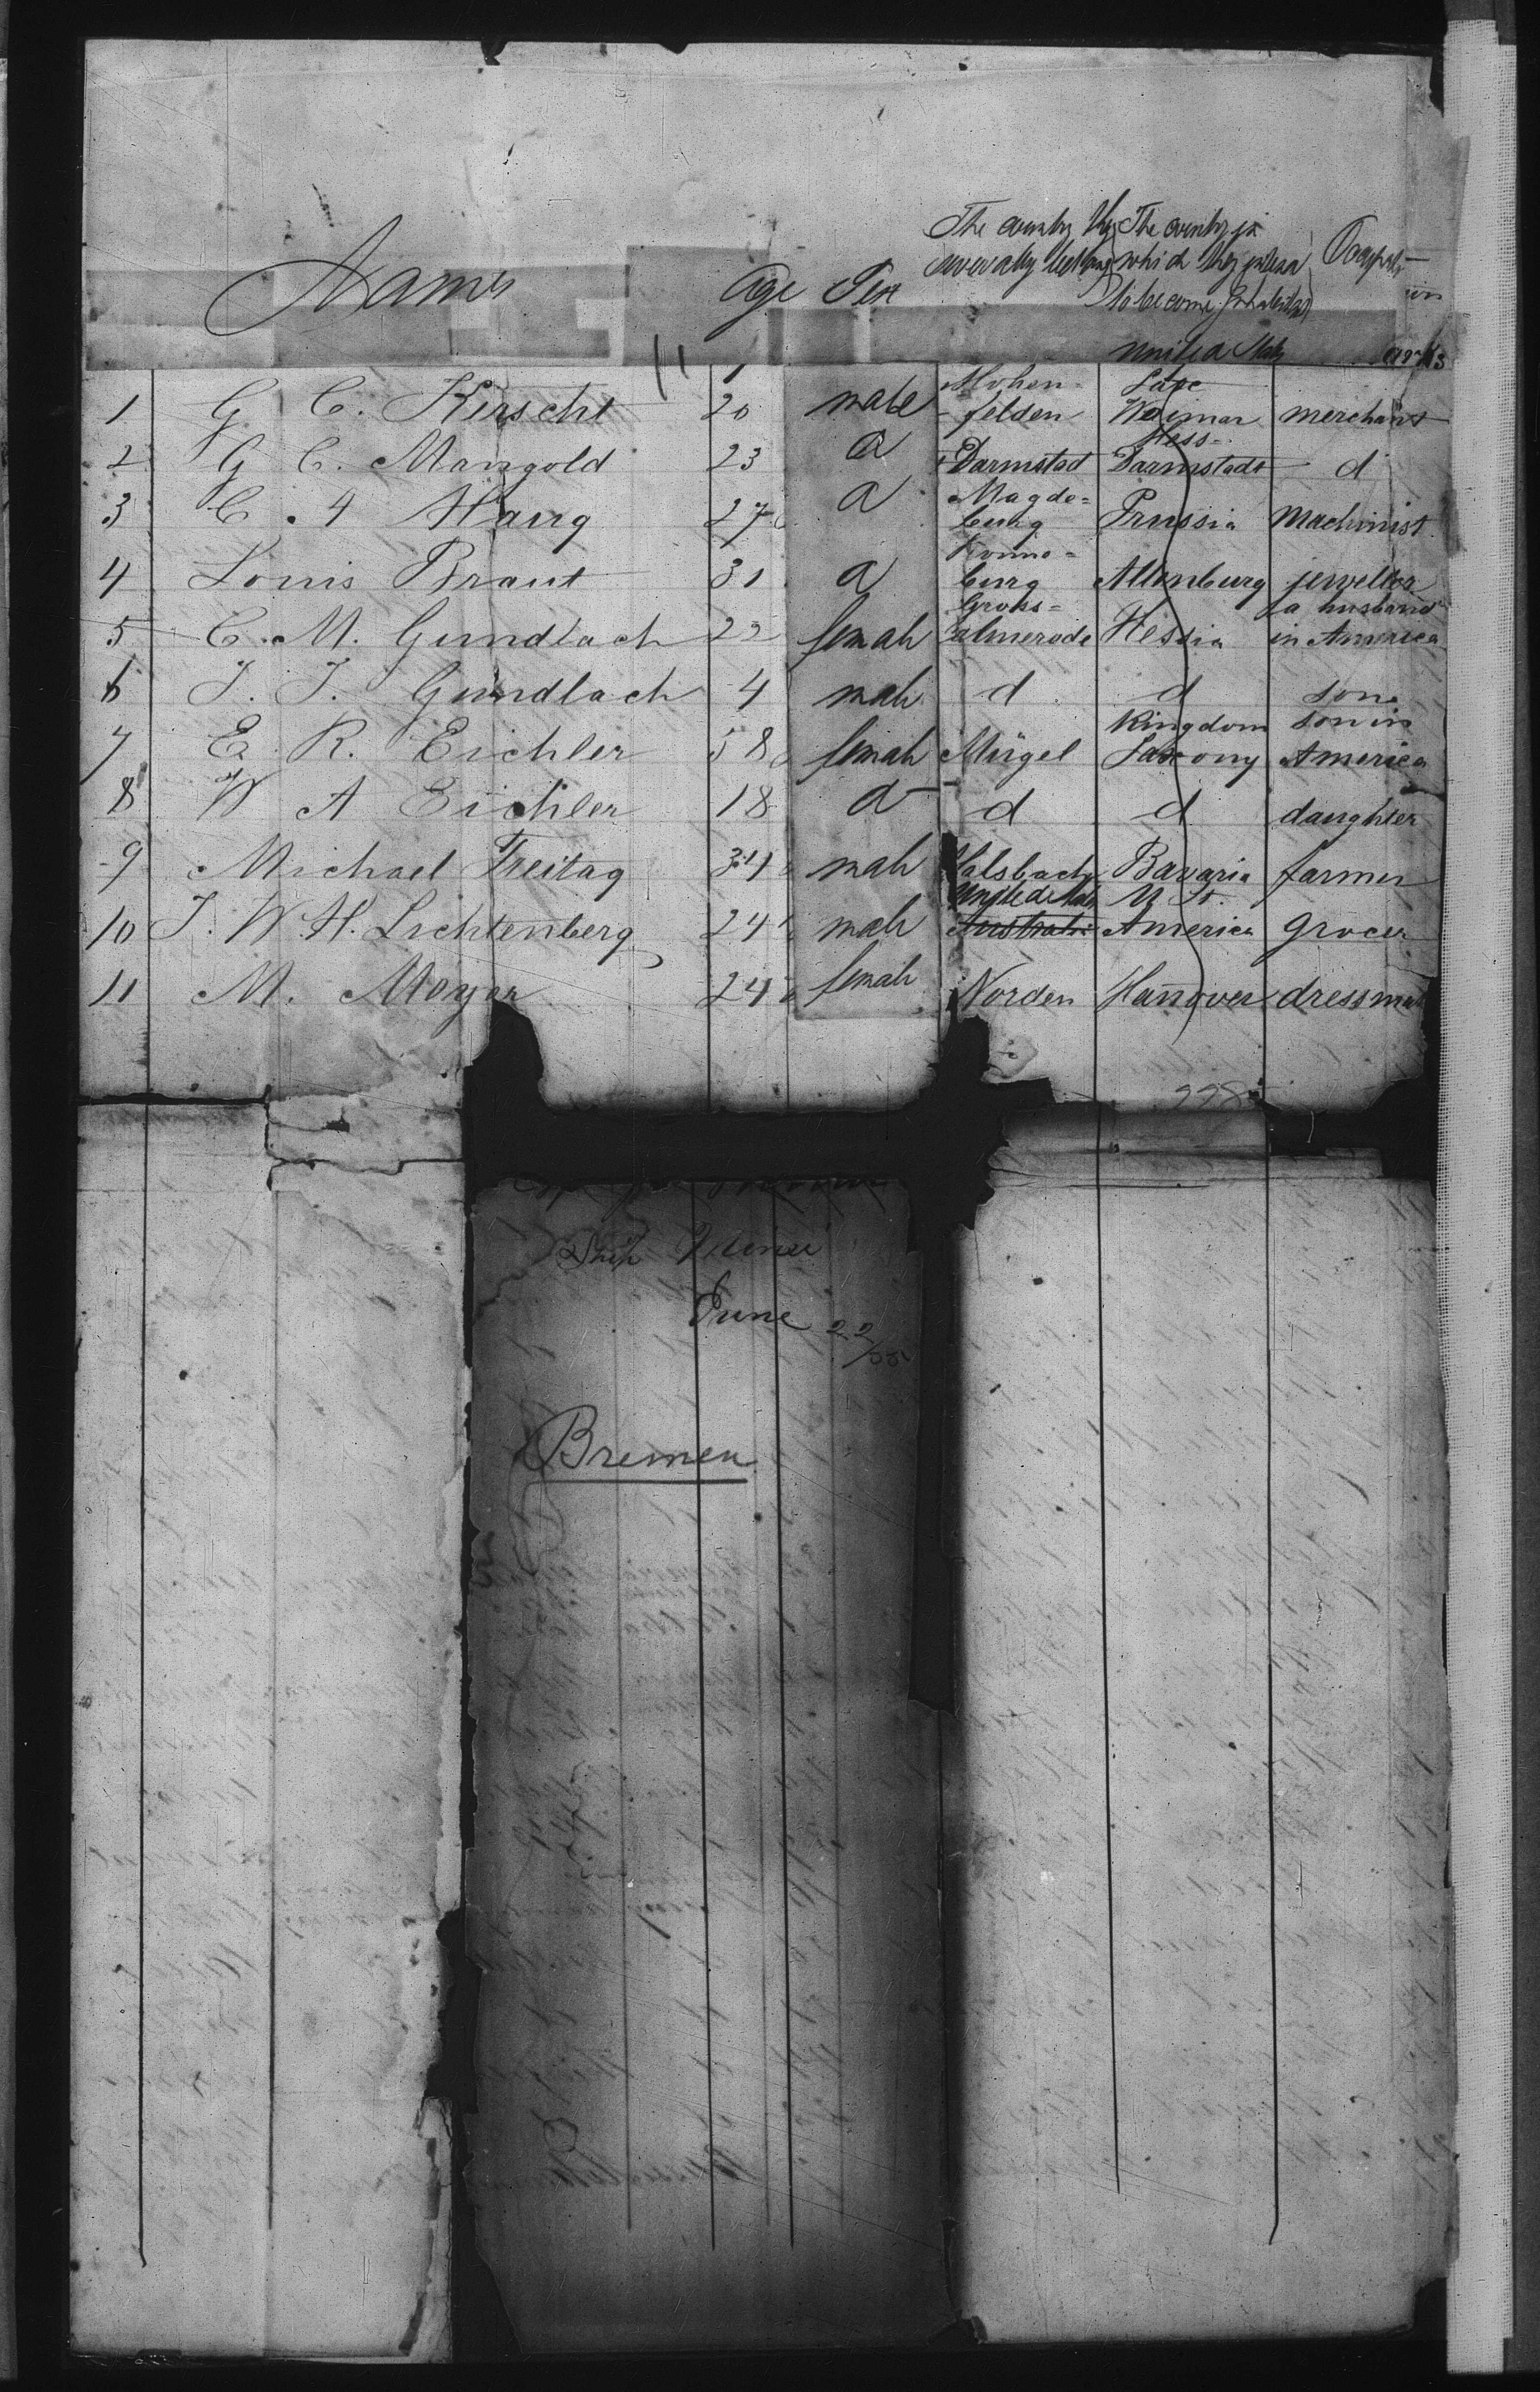 Names Age Sex The country they severally belong The country in which they intend to become Inhabitants Occupation
United States
11
1 G C. Kirscht 20 male Hohen-felden Saxe Weimar merchant
2 G C. Mangold 23 d Darmstad Hess-Darmstadt d
3 C. A Haug 27 d Magde=burg Prussia Machinist
4 Louis Braut 31 d Ronne=burg Altenburg jeweller
5 C. M. Gundlach 22 female Gross=almerode Hessia a husband in America
6 J. J. Gundlach 4 male d d son
7 E. R. Eichler 58 female Mügel Kingdom Saxony son in America
8 W A Eichler 18 d d d daughter
9 Michael Freitag 34 male Bavaria farmer
10 J. W. H. Lichtenberg 24 male United States Australi U St. America grocer
11 M. Meyer 24 female Norden Hanover dressmak
998
Ship
June 22/55
Bremen